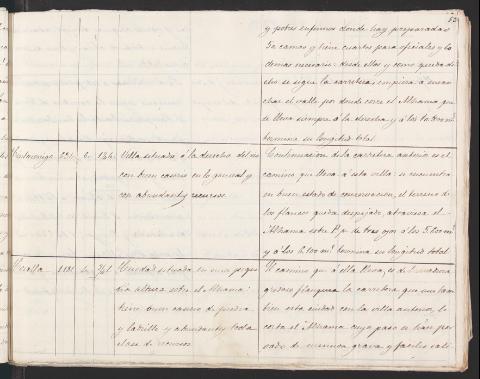 52
y pobres enfermos donde hay preparadas
50 camas y tiene cuartos para oficiales y lo
demas necesario: desde ellos y como queda di-
cho se sigue la carretera; empieza á ensan-
char el valle por donde corre el Alhama que
se lleva siempre á la derecha y á los 12.800 m.s
termina su longitud total
Cintruénigo
Villa situada á la derecha del rio
con buen caserio en lo general y
con abundantes recursos.
Continuacion de la carretera anterior es el
camino que lleva á esta villa: se encuentra
en buen estado de conservacion, el terreno de
los flancos queda despejado atraviesa el
Alhama sobre P.te de tres ojos á los 5.600 m.s
y á los 6.100 m.s termina su longitud total
Corella
Ciudad situada en una peque-
ña altura sobre el Alhama:
tiene buen caserio de piedra
y ladrillo y abundante toda
clase de recursos.
El camino que á ella lleva, es de
la carretera que une tam-
bien esta ciudad con la villa anterior,
el Alhama cuyo paso
de menuda grava y faciles sali-